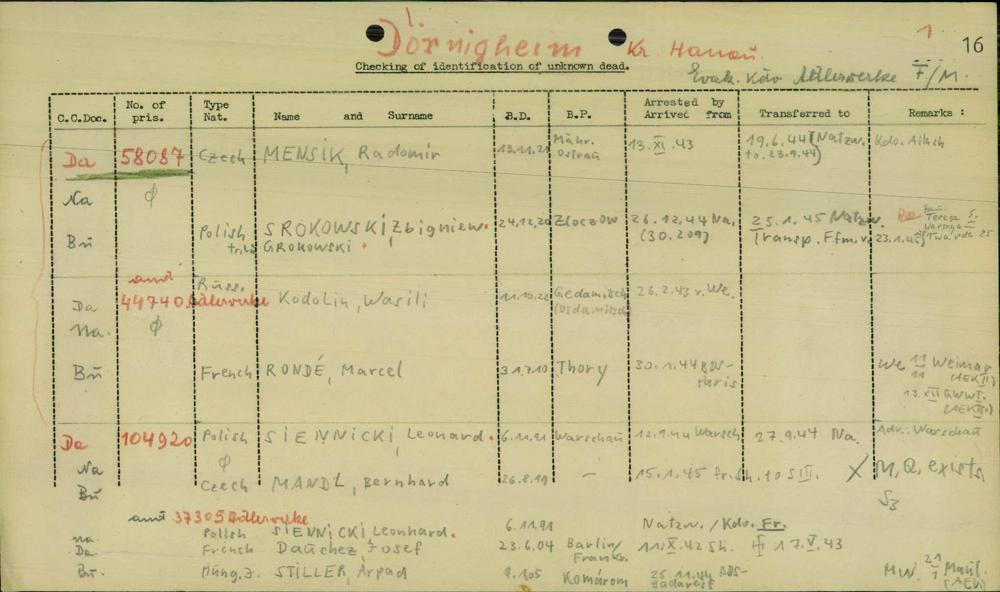 1.
Dörnigheim Kr. Hanau
1
16
Checking of identification of unknown dead.
Evak. Kdo Adlerwerke F/M.
C.C.Doc. No. of pris. Type Nat. Name and Surname B.D. B.P. Arrested by Arrived from Transferred to Remarks :
Da 58087 Czech MENSIK, Radomir 13.11.21 Mähr. Ostrau 13.XI.43 19.6.44 (Natzw. to. 23.9.44) Kdo. Allach
Na ϕ
Bu Polish SROKOWSKI, Zbigniew. 24.12.20 Zloczow 26.12.44 Na. 25.1.45 Natzw.
GROKOWSKI. (30.209) Transp. Ffm. 23.1.45
Teresa S.
Warschau
auf Russ.
Da 44740 Adlerwerke Kodolin, Wasili 11.10.22 Gedamitsch 26.2.43 v. We.
(Osdamitsch)
Na. ϕ
Bu French RONDÉ, Marcel 31.7.10 Thory 30.1.44 BDS- Paris We 11 Weimar
11 (AEKII)
13.XII GWWI.
Da 104920 Polish SIENNICKI, Leonard. 6.11.91 Warschau 12.9.44 Warsch 27.9.44 Na. Adr.: Warschau
Na ϕ
Bu Czech MANDL, Bernhard 26.8.19 - 15.1.45 X M,Q, exists
S3
auf 37305 Adlerwerke
Na. Polish SIENNICKI Leonhard. 6.11.91 Natzw. / Kdo. Fr.
Da French Dauchez, Josef 23.6.04 Barlin/ Frankr. 11.X.42 Sh. 17.V.43
Bu. Hung.J. STILLER, Arpad Komárom 25.11.44 BDS- Budapest